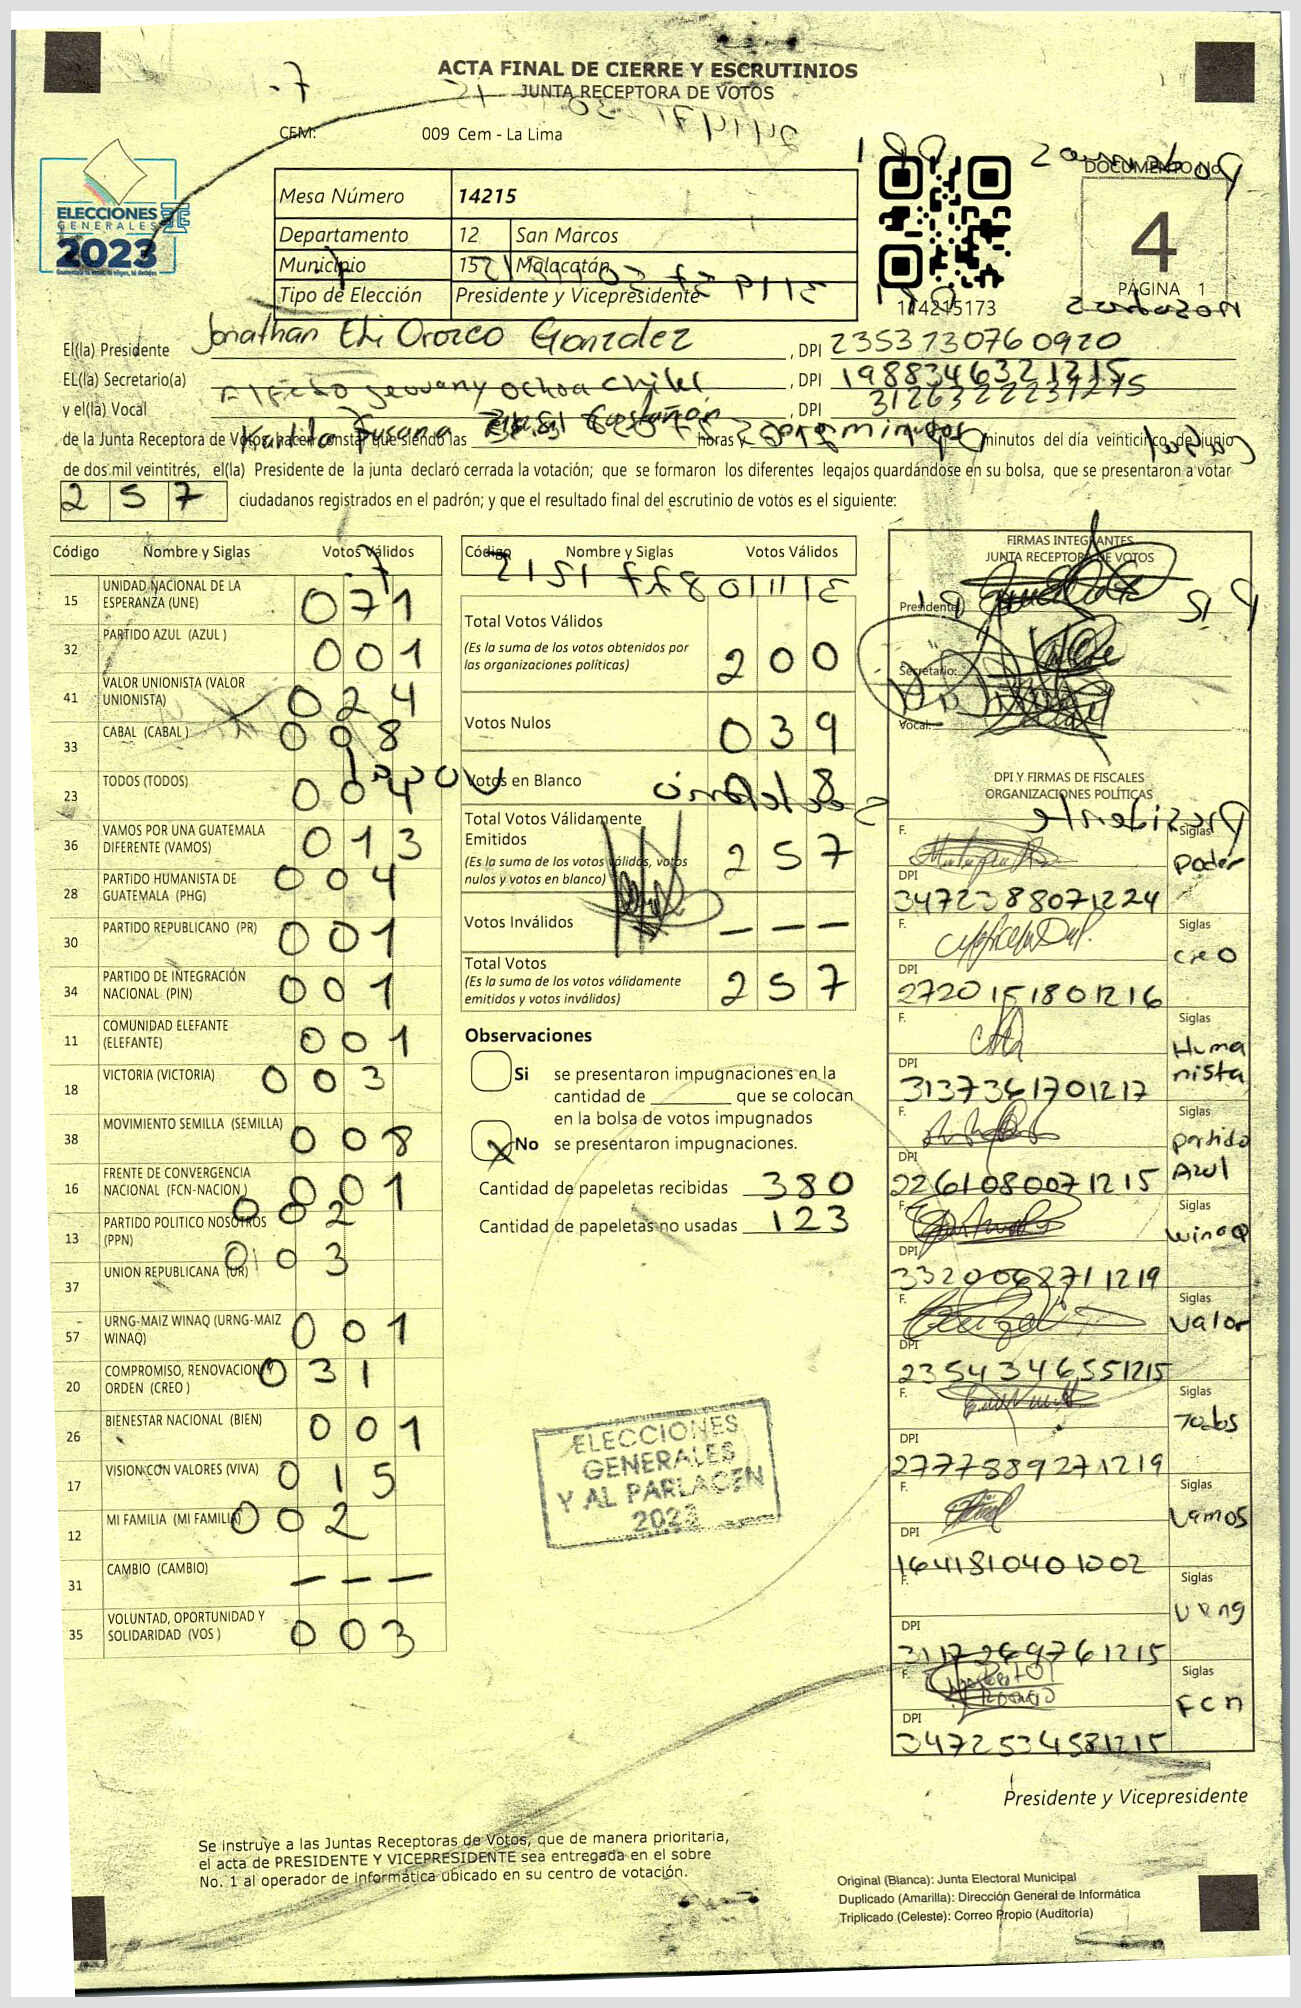 ACTA FINAL DE CIERRE Y ESCRUTINIOS
JUNTA RECEPTORA DE VOTOS
CEM: 009 Cem - La Lima
ELECCIONES
GENERALES
2023
Mesa Número 14215
Departamento 12 San Marcos
Municipio 15 Malacatán
Tipo de Elección Presidente y Vicepresidente
114215173
DOCUMENTO No.
4
PÁGINA 1
El(la) Presidente Jonathan Eli Orozco Gonzalez , DPI 2353730760920
EL(la) Secretario(a) Alfredo Jeovany Ochoa Chilel , DPI 1988346321215
y el(la) Vocal , DPI
de la Junta Receptora de Votos, hacen constar que siendo las horas y minutos del día veinticinco de junio
de dos mil veintitrés, el(la) Presidente de la junta declaró cerrada la votación; que se formaron los diferentes legajos guardándose en su bolsa, que se presentaron a votar
257 ciudadanos registrados en el padrón; y que el resultado final del escrutinio de votos es el siguiente:
Código Nombre y Siglas Votos Válidos
15 UNIDAD NACIONAL DE LA ESPERANZA (UNE) 071
32 PARTIDO AZUL (AZUL ) 001
41 VALOR UNIONISTA (VALOR UNIONISTA) 024
33 CABAL (CABAL ) 008
23 TODOS (TODOS) 004
36 VAMOS POR UNA GUATEMALA DIFERENTE (VAMOS) 013
28 PARTIDO HUMANISTA DE GUATEMALA (PHG) 004
30 PARTIDO REPUBLICANO (PR) 001
34 PARTIDO DE INTEGRACIÓN NACIONAL (PIN) 001
11 COMUNIDAD ELEFANTE (ELEFANTE) 001
18 VICTORIA (VICTORIA) 003
38 MOVIMIENTO SEMILLA (SEMILLA) 008
16 FRENTE DE CONVERGENCIA NACIONAL (FCN-NACION ) 001
13 PARTIDO POLITICO NOSOTROS (PPN) 002
37 UNION REPUBLICANA (UR) 003
57 URNG-MAIZ WINAQ (URNG-MAIZ WINAQ) 001
20 COMPROMISO, RENOVACION Y ORDEN (CREO ) 031
26 BIENESTAR NACIONAL (BIEN) 001
17 VISION CON VALORES (VIVA) 015
12 MI FAMILIA (MI FAMILIA) 002
31 CAMBIO (CAMBIO) – – –
35 VOLUNTAD, OPORTUNIDAD Y SOLIDARIDAD (VOS ) 003
Código Nombre y Siglas Votos Válidos
Total Votos Válidos
(Es la suma de los votos obtenidos por
las organizaciones políticas)
200
Votos Nulos 039
Votos en Blanco
Total Votos Válidamente
Emitidos
(Es la suma de los votos válidos, votos
nulos y votos en blanco)
257
Votos Inválidos – – –
Total Votos
(Es la suma de los votos válidamente
emitidos y votos inválidos)
257
Observaciones
Si se presentaron impugnaciones en la
cantidad de ________ que se colocan
en la bolsa de votos impugnados
X No se presentaron impugnaciones.
Cantidad de papeletas recibidas 380
Cantidad de papeletas no usadas 123
ELECCIONES
GENERALES
Y AL PARLACEN
2023
FIRMAS INTEGRANTES
JUNTA RECEPTORA DE VOTOS
Presidente:
Secretario:
Vocal:
DPI Y FIRMAS DE FISCALES
ORGANIZACIONES POLÍTICAS
F. Siglas
Poder
DPI
3472388071224
F. Siglas
creo
DPI
2720151801216
F. Siglas
Huma
nista
DPI
3137361701217
F. Siglas
partido
Azul
DPI
2261080071215
F. Siglas
winaq
DPI
3320068711219
F. Siglas
Valor
DPI
2354346551215
F. Siglas
Todos
DPI
2777889271219
F. Siglas
Vamos
DPI
1641810401002
F. Siglas
Urng
DPI
3117269761215
F. Siglas
FCN
DPI
3472534581215
Presidente y Vicepresidente
Se instruye a las Juntas Receptoras de Votos, que de manera prioritaria,
el acta de PRESIDENTE Y VICEPRESIDENTE sea entregada en el sobre
No. 1 al operador de informática ubicado en su centro de votación.
Original (Blanca): Junta Electoral Municipal
Duplicado (Amarilla): Dirección General de Informática
Triplicado (Celeste): Correo Propio (Auditoría)